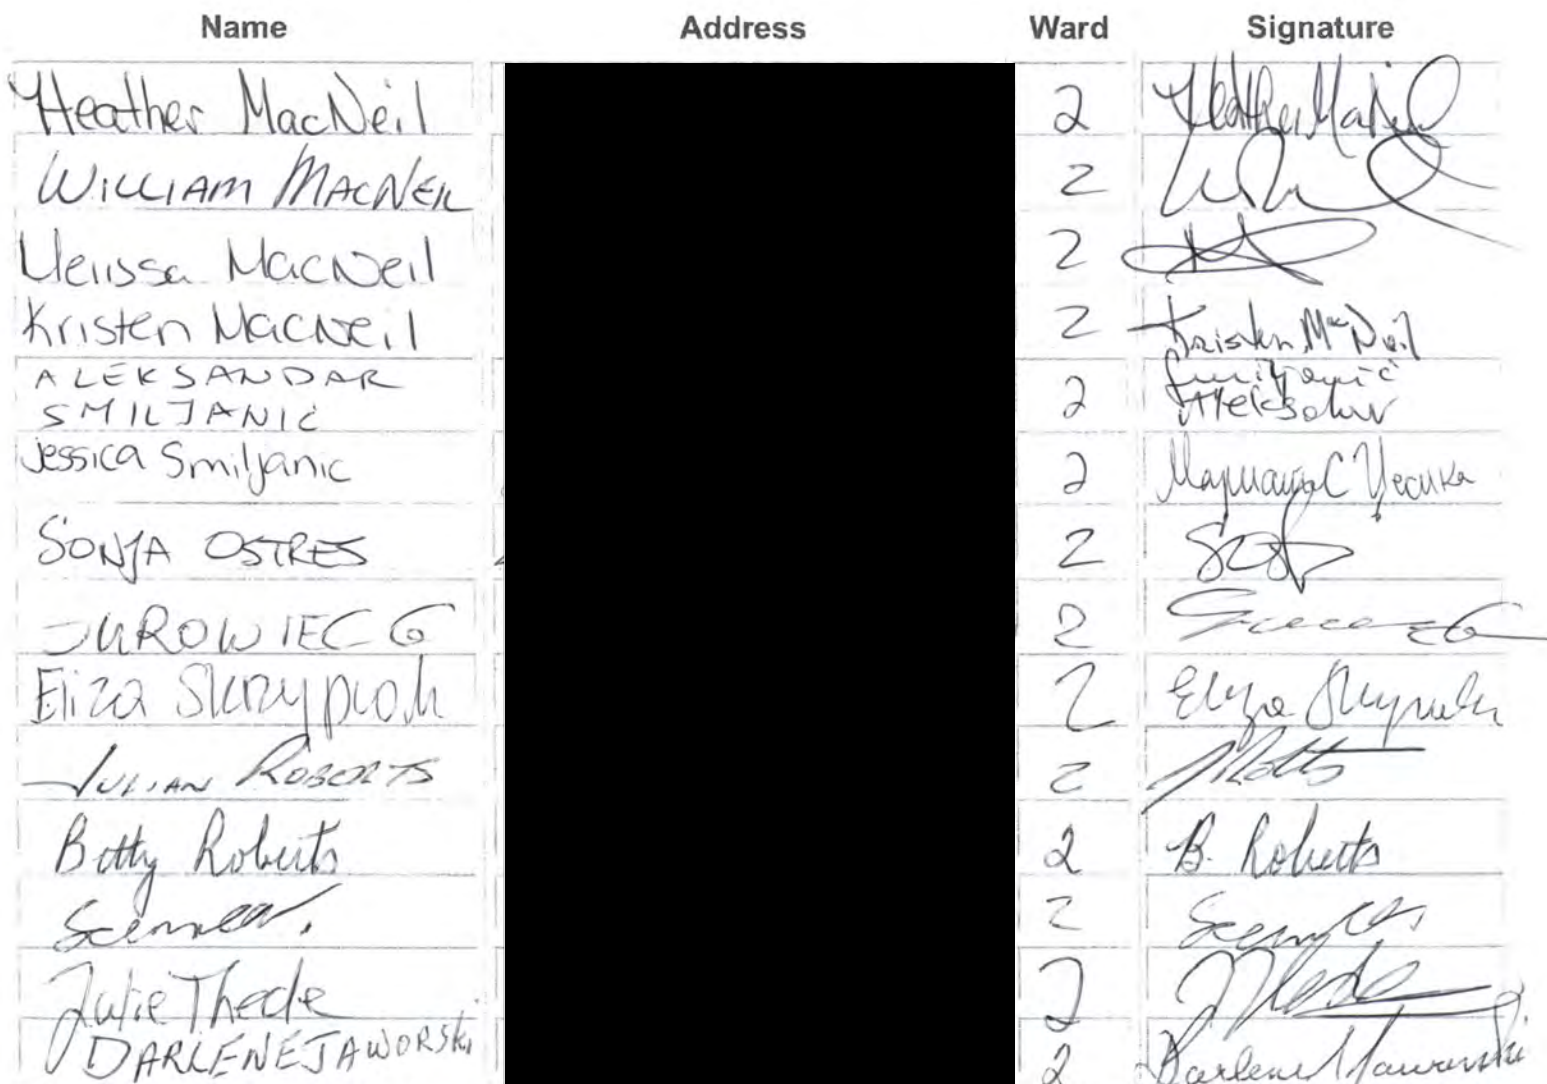 Name Address Ward Signature
Heather MacNeil 2 Heather MacNeil
WILLIAM MACNEIL 2
Melissa MacNeil 2
Kristen MacNeil 2 Kristen MacNeil
ALEKSANDAR
SMILJANIC 2 Smiljanić
Aleksandar
Jessica Smiljanic 2
SONJA OSTRES 2
JUROWIEC G 2
Eliza Skrzypioch 2 Eliza
JULIAN ROBERTS 2
Betty Roberts 2 B. Roberts
2
Julie Thede 2 JThede
DARLENE JAWORSKi 2 Darlene Jaworski